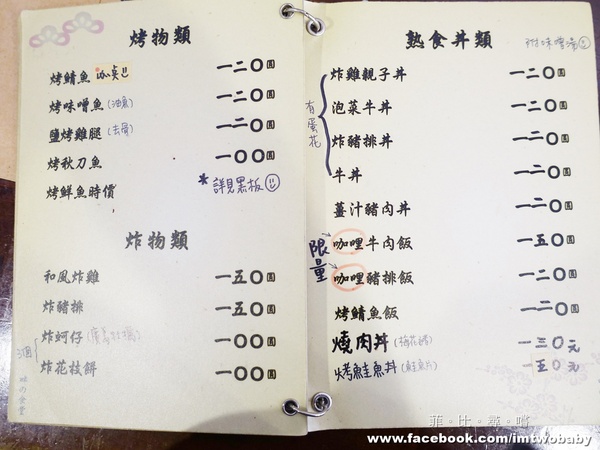 烤物類
烤鯖魚 一二〇圓
烤味噌魚(油魚) 一二〇圓
鹽烤雞腿(去骨) 一二〇圓
烤秋刀魚 一〇〇圓
烤鮮魚時價 *詳見黑板
炸物類
和風炸雞 一五〇圓
炸豬排 一五〇圓
炸蚵仔 一〇〇圓
炸花枝餅 一〇〇圓
3個
熟食丼類 附味噌湯
有蛋花
炸雞親子丼 一二〇圓
泡菜牛丼 一二〇圓
炸豬排丼 一二〇圓
牛丼 一二〇圓
薑汁豬肉丼 一二〇圓
限量
咖哩牛肉飯 一五〇圓
咖哩豬排飯 一二〇圓
烤鯖魚飯 一二〇圓
燒肉丼(梅花豬) 一三〇元
烤鮭魚丼(鮭魚片) 一五〇元
菲·比·尋·嚐
www.facebook.com/imtwobaby